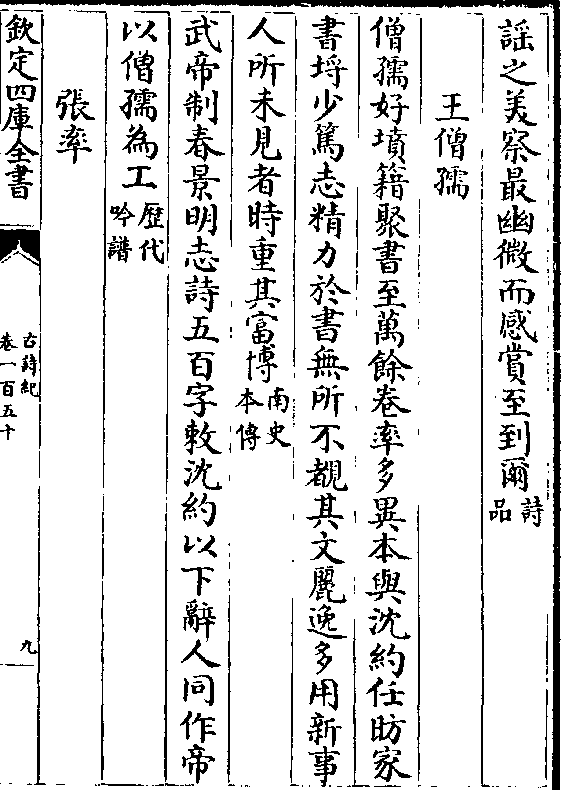 謡之美察最幽微而感賞至到爾詩品
王僧孺
僧孺好墳籍聚書至萬餘卷率多異本與沈約任昉家
書埒少篤志精力於書無所不覩其文麗逸多用新事
人所未見者時重其富博南史本傳
武帝制春景明志詩五百字敕沈約以下辭人同作帝
以僧孺為工歴代吟譜
張率
欽定四庫全書
古詩紀
卷一百五十
九